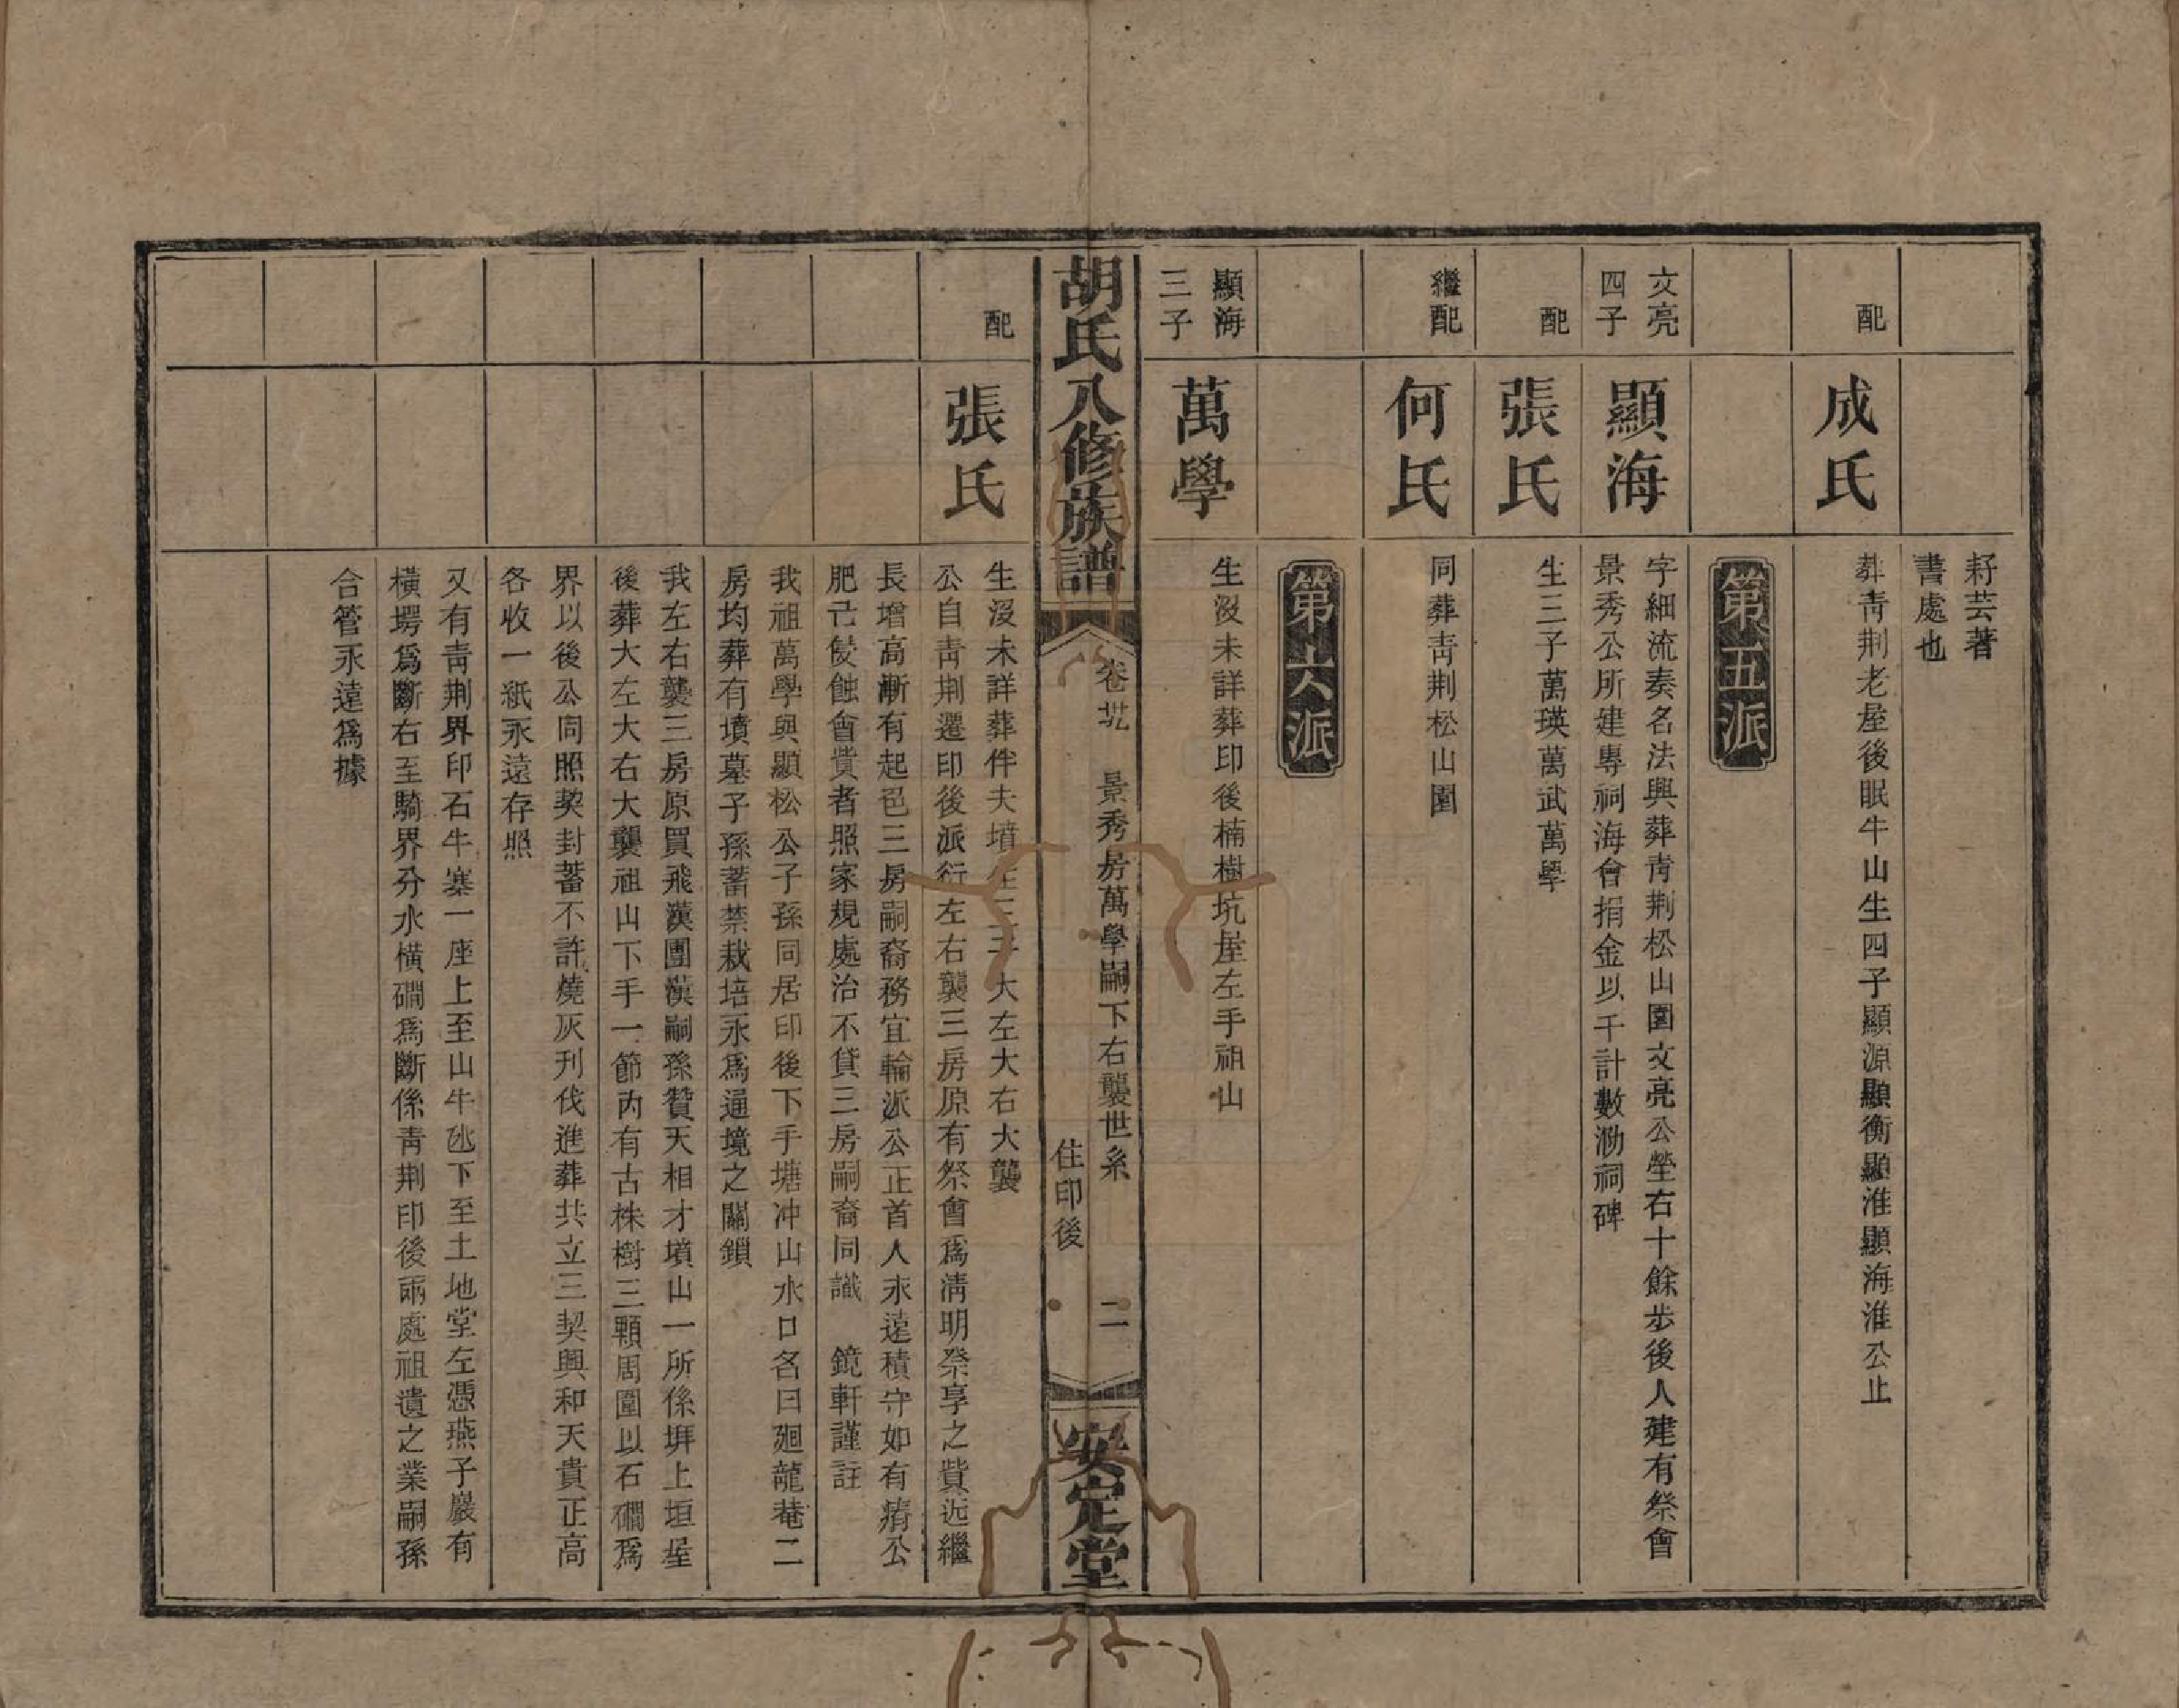 耔芸著
書處也
配
成氏
葬靑荆老屋後眠牛山生四子顯源顯衡顯淮顯海淮公止
第五派
文亮
四子
顯海
字細流奏名法興葬靑荆松山園文亮公塋右十餘步後人建有祭會
景秀公所建專祠海會捐金以千計數泐祠碑
配
張氏
生三子萬瑛萬武萬學
繼配
何氏
同葬靑荆松山園
第六派
顯海
三子
萬學
生沒未詳葬印後楠樹坑屋左手祖山
胡氏八修族譜
卷
景秀房萬學嗣下右襲世系
住印後
二
安定堂
配
張氏
生沒未詳葬伴夫墳生三子大左大右大襲
公自靑荆遷印後派衍左右襲三房原有祭會爲淸明祭享之貲近繼
長增高漸有起色三房嗣裔務宜輪派公正首人永遠積守如有瘠公
肥己侵蝕會貲者照家規處治不貸三房嗣裔同識 鏡軒謹註
我祖萬學與顯松公子孫同居印後下手塘冲山水口名曰廻龍菴二
房均葬有墳墓子孫蓄禁栽培永爲通境之關鎖
我左右襲三房原買飛漢團漢嗣孫贊天相才墳山一所係塀上垣屋
後葬大左大右大襲祖山下手一節內有古株樹三顆周圍以石磵爲
界以後公同照契封蓄不許燒灰刊伐進葬共立三契興和天貴正高
各收一紙永遠存照
又有靑荆界印石牛寨一座上至山牛氹下至土地堂左憑燕子巖有
橫堮爲斷右至騎界分水橫磵爲斷係靑荆印後兩處祖遺之業嗣孫
合管永遠爲據